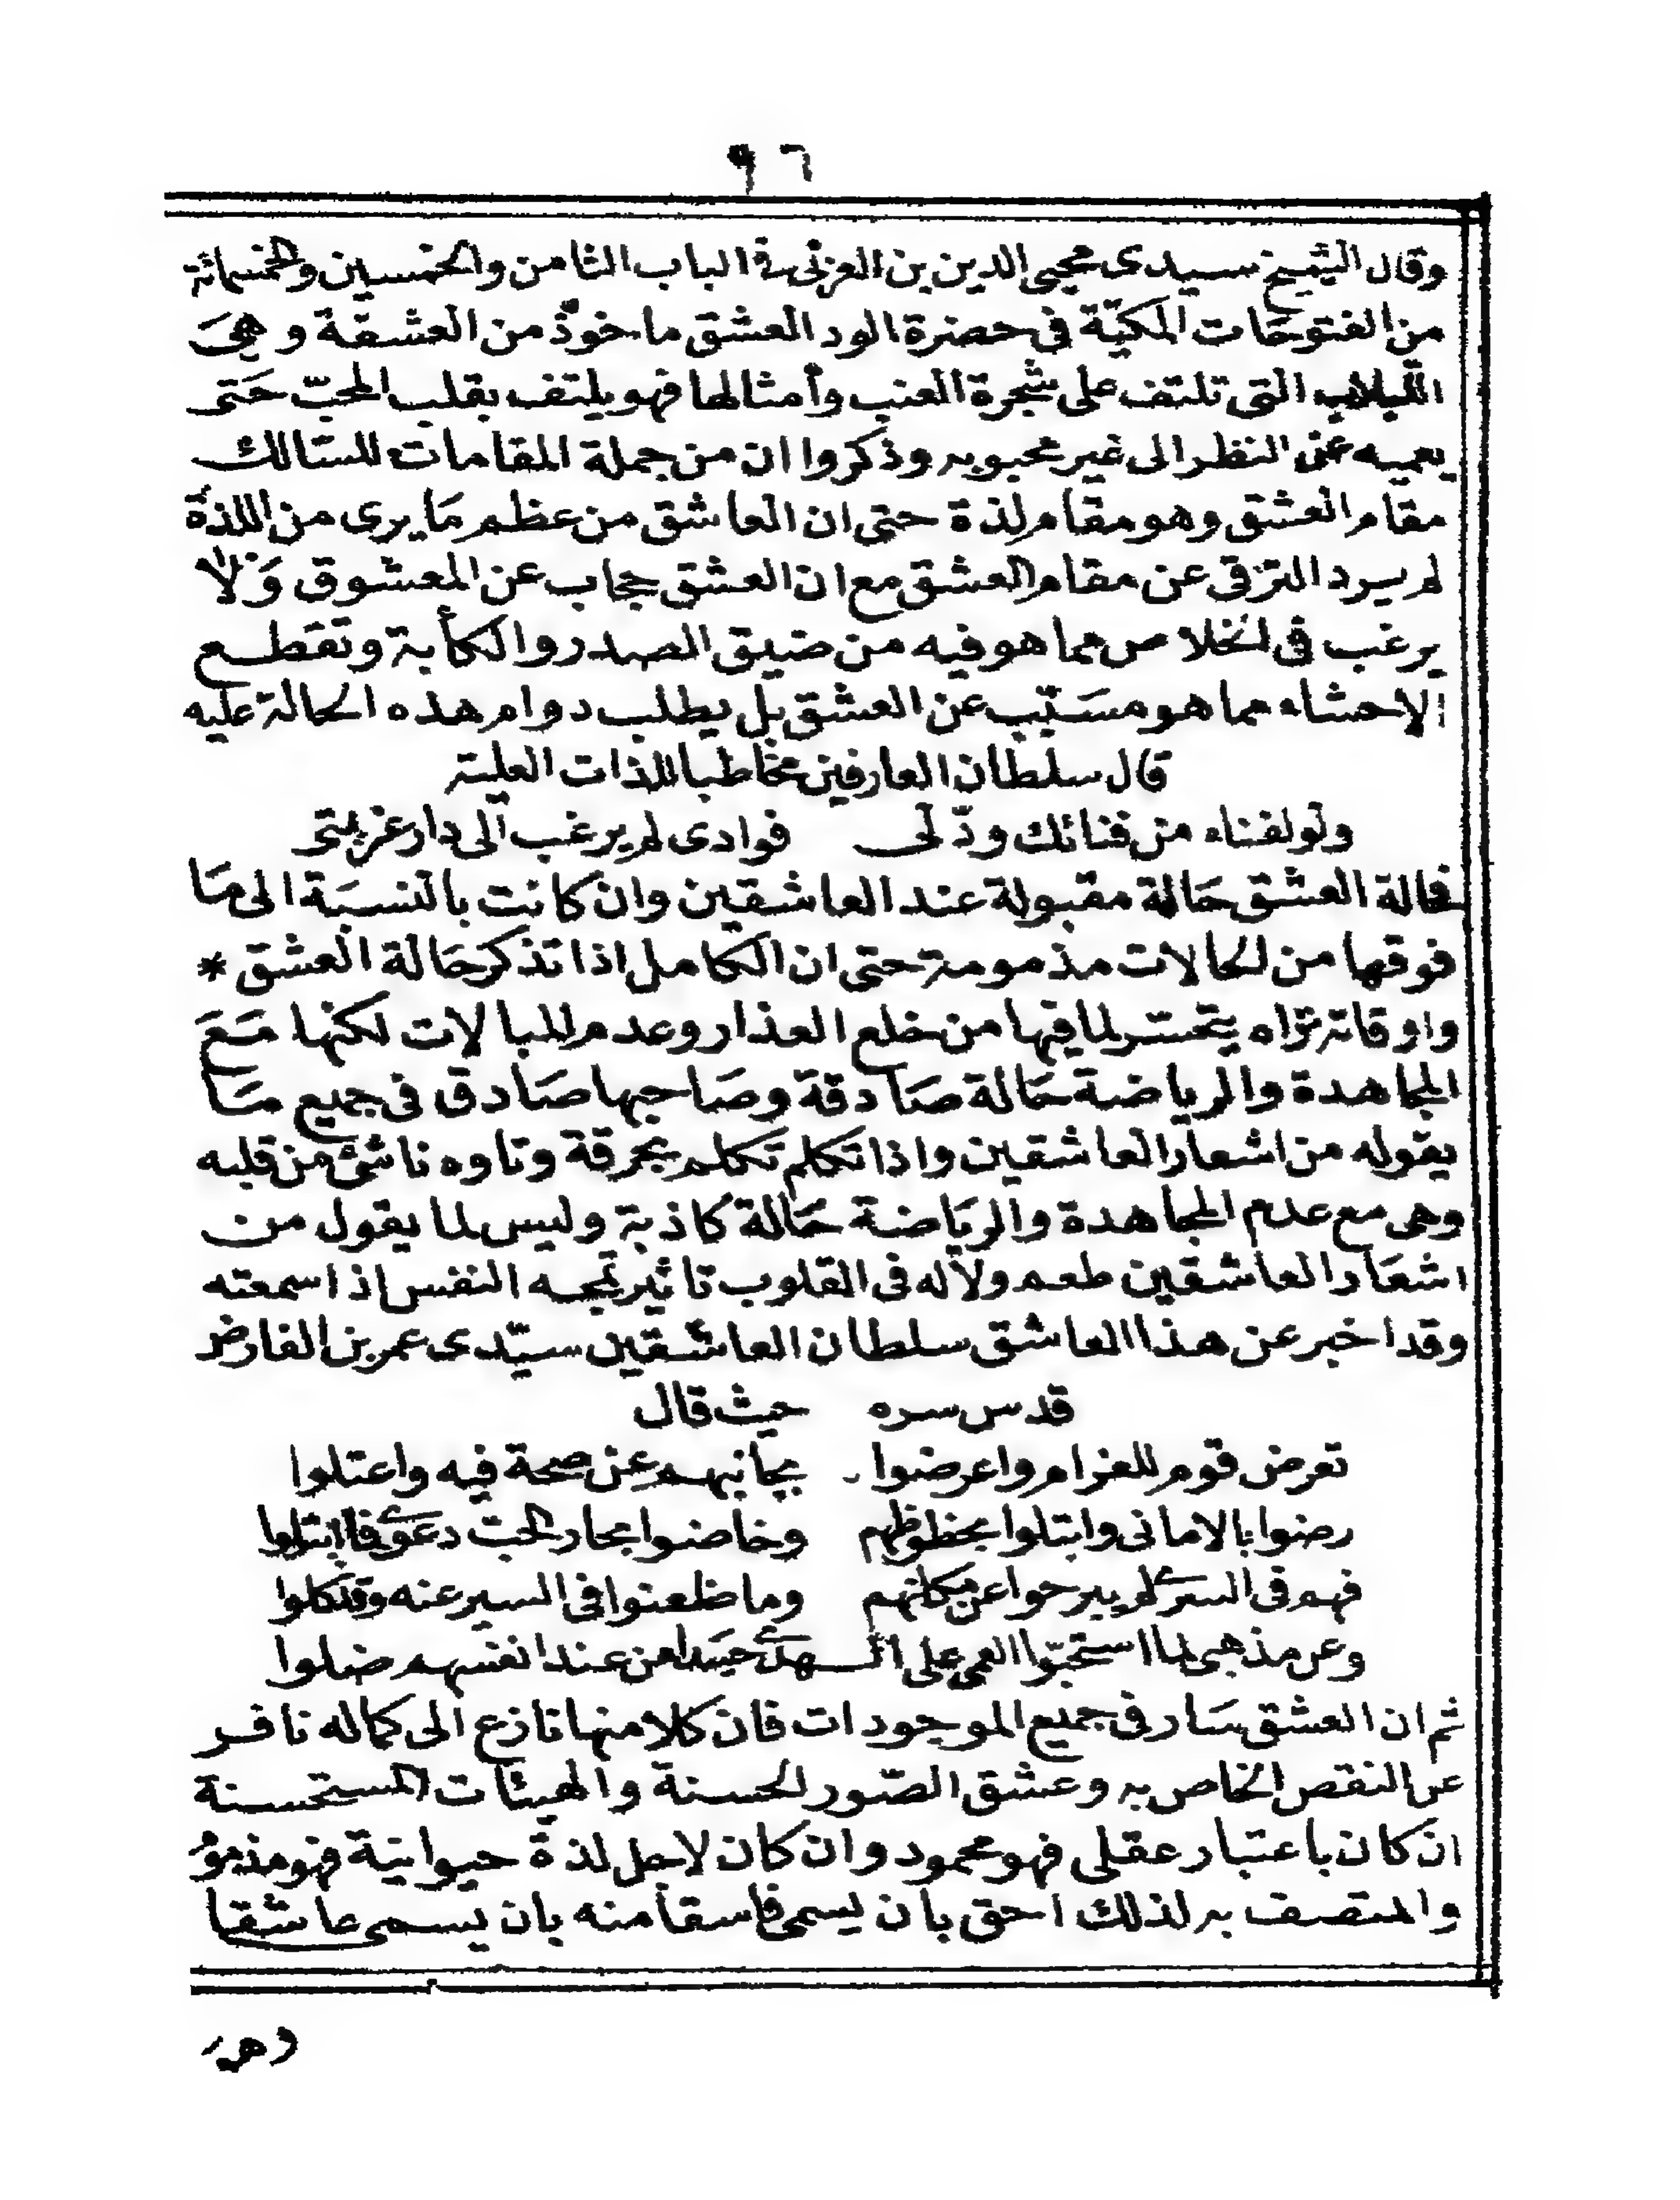 ٩٦
وقال الشيخ سيدى محيى الدين بن العربى فى الباب الثامن والخمسين والخمسمائة
من الفتوحات المكيّة فى حضرة الود العشق ماخوذ من العشقة وهىَ
اللبلاب التى تلتف على شجرة العنب وأمثالها فهو يلتف بقلب المحبّ حَتى
يعميه عن النظر الى غير محبوبه وذكروا ان من جملة المقامات للسّالك
مقام العشق وهو مقام لذة حتى ان العاشق من عظم مَا يرى من اللذة
لم يرد الترقى عن مقام العشق مع ان العشق حجاب عن المعشوق وَلا
يرغب فى الخلاص مما هو فيه من ضيق الصدر والكأبة وتقطع
الاحشاء مما هو مسَبّب عن العشق بل يطلب دوام هذه الحالة عليه
قال سلطان العارفين مخاطبا للذات العلية
ولو لفناء من فنائك ودّ لى فوادى لم يرغب الى دار غربتى
فحالة العشق حَالة مقبولة عند العاشقين وان كانت بالنسبَة الى مَا
فوقها من الحالات مذمومة حتى ان الكامل اذا تذكر حَالة العشق *
واوقاته تراه يتحسّر لما فيها من خلع العذار وعدم المبالات لكنها مَعَ
المجاهدة والرياضة حَالة صَادقة وصَاحبها صَادق فى جميع مَا
يقوله من اشعار العاشقين واذا تكلم تكلم بحرقة وتاوه ناشئ من قلبه
وهى مع عدم المجاهدة والريَاضة حَالة كاذبة وليس لما يقول من
اشعَار العاشقين طعم ولا له فى القلوب تاثير تمجه النفس اذ اسمعته
وقد اخبر عن هذا العاشق سلطان العاشقين سيّدى عمر بن الفارض
قدس سره حيث قال
تعرض قوم للغرام واعرضوا بجانبهم عن صحة فيه واعتلوا
رضوا بالامانى وابتلوا بحظوظهم وخاضوا بحار الحبّ دعوى فا ابتلوا
فهم فى السرى لم يبرحوا عن مكانهم وما ظعنوا فى السير عنه وقد كلوا
وعن مذهبى لما استحبّوا العمى على الـهدى حسَدا من عند انفسهم ضلوا
ثم ان العشق سَار فى جميع الموجودات فان كلا منها نازع الى كماله نافر
عن النقص الخاص به وعشق الصّور الحسنة والهيئات المستحسنة
ان كان باعتبار عقلى فهو محمود وان كان لاجل لذة حيوانيّة فهو مذموم
والمتصف به لذلك احق بان يسمى فاسقا منه بان يسمى عاشقا